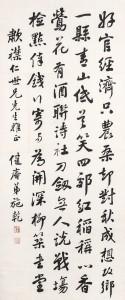 好官經濟只農桑却對秋成想故鄉
一縣青山低笑四郊紅稻香
鶯花有酒聯詩社刀劍無人說戰場
檢點俸錢寄與為開深柳築書堂
襟仁世兄先生雅正
健庵弟施乾